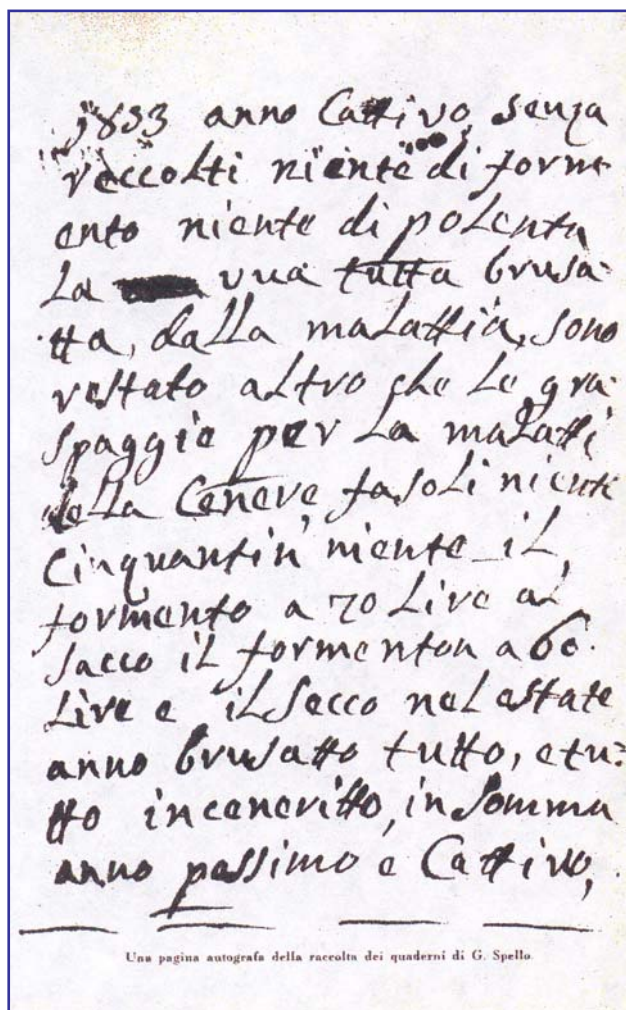 1833 anno Cattivo, senza
reccolti niente di forme
ento niente di polenta
La uva tutta brusa
tta, dalla malattia, sono
restato altro che Le gra
spaggie per La malatti
della Cenere, fasoli niente
Cinquantin niente il
formento a 70 Live al
sacco il formenton a 60.
Live e il Secco nel estate
anno brusatto tutto, e tu:
tto inceneritto, in Somma
anno pessimo e Cattivo,
Una pagina autografa della raccolta dei quaderni di G. Spello.